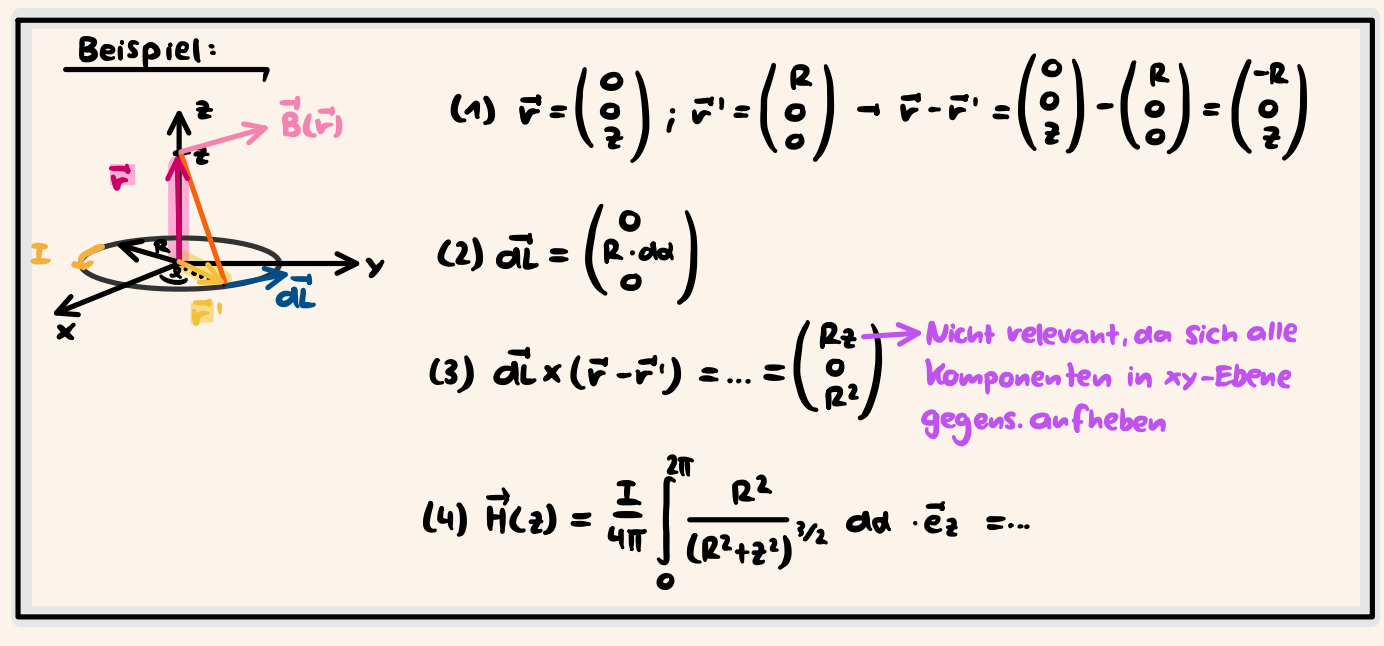 Beispiel:
z
B⃗(r⃗)
z
r⃗
I
R
α
y
dL⃗
r⃗'
x
(1) r⃗ = (0 0 z) ; r⃗' = (R 0 0) → r⃗ - r⃗' = (0 0 z) - (R 0 0) = (-R 0 z)
(2) dL⃗ = (0 R·dα 0)
(3) dL⃗ × (r⃗ - r⃗') = ... = (Rz 0 R²)
Nicht relevant, da sich alle
Komponenten in xy-Ebene
gegens. aufheben
(4) H⃗(z) = I/4π ∫₀^2π R²/(R²+z²)^3/2 dα · e⃗z = ...